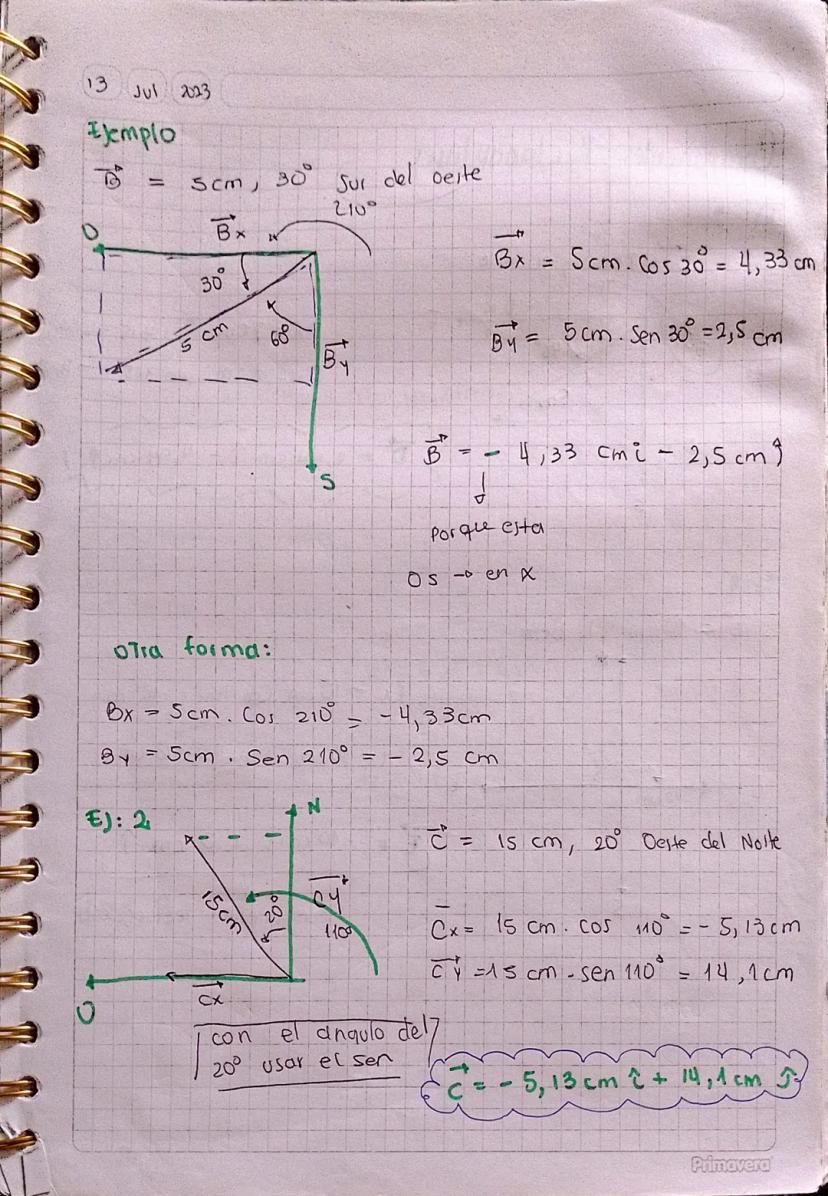 13 Jul 2023
Ejemplo
B = 5cm, 30° Sur del oeste
210°
O
Bx
30°
5 cm
60°
By
S
Bx = 5cm . Cos 30° = 4,33 cm
By = 5cm . Sen 30° = 2,5 cm
B = - 4,33 cm î - 2,5 cm ĵ
Porque esta
en x
Otra forma:
Bx = 5cm . Cos 210° = -4,33cm
By = 5cm . Sen 210° = - 2,5 cm
Ej: 2
N
15cm
20°
Cy
110°
O
Cx
C = 15 cm, 20° Oeste del Norte
Cx = 15 cm . cos 110° = - 5,13cm
Cy = 15 cm . sen 110° = 14,1cm
con el angulo del
20° usar el sen
C = - 5,13cm î + 14,1cm ĵ
Primavera